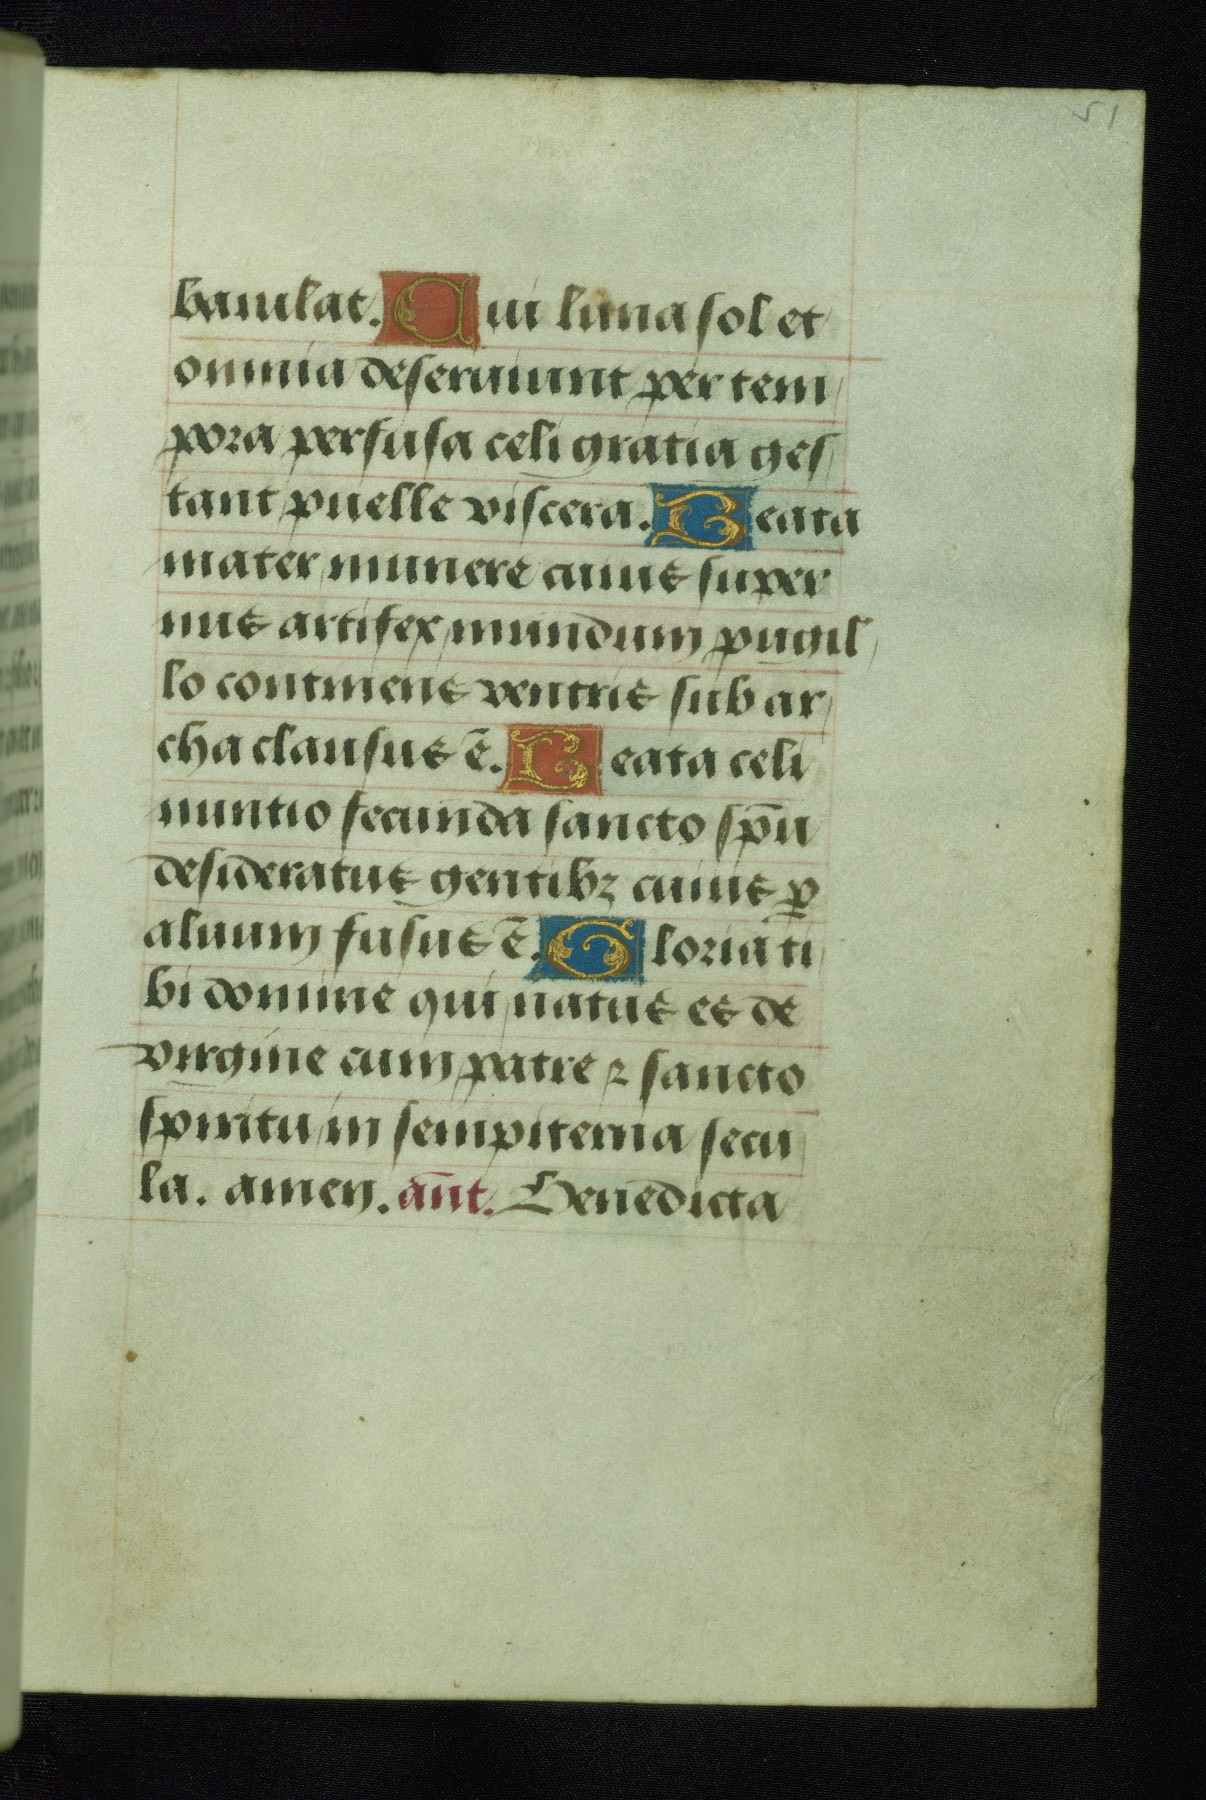 51
baiulat. Cui luna sol et
omnia deseruiunt per tem
pora perfusa celi gratia ges
tant puelle viscera. Beata
mater munere cuius super
nus artifex mundum pugil
lo continens ventris sub ar
cha clausus ē. Beata celi
nuntio fecunda sancto sp̄u
desideratus gentibꝫ cuius ꝑ
aluum fusus ē. Gloria ti
bi domine qui natus es de
virgine cum patre ⁊ sancto
spiritu in sempiterna secu
la. amen. an̄t. Benedicta